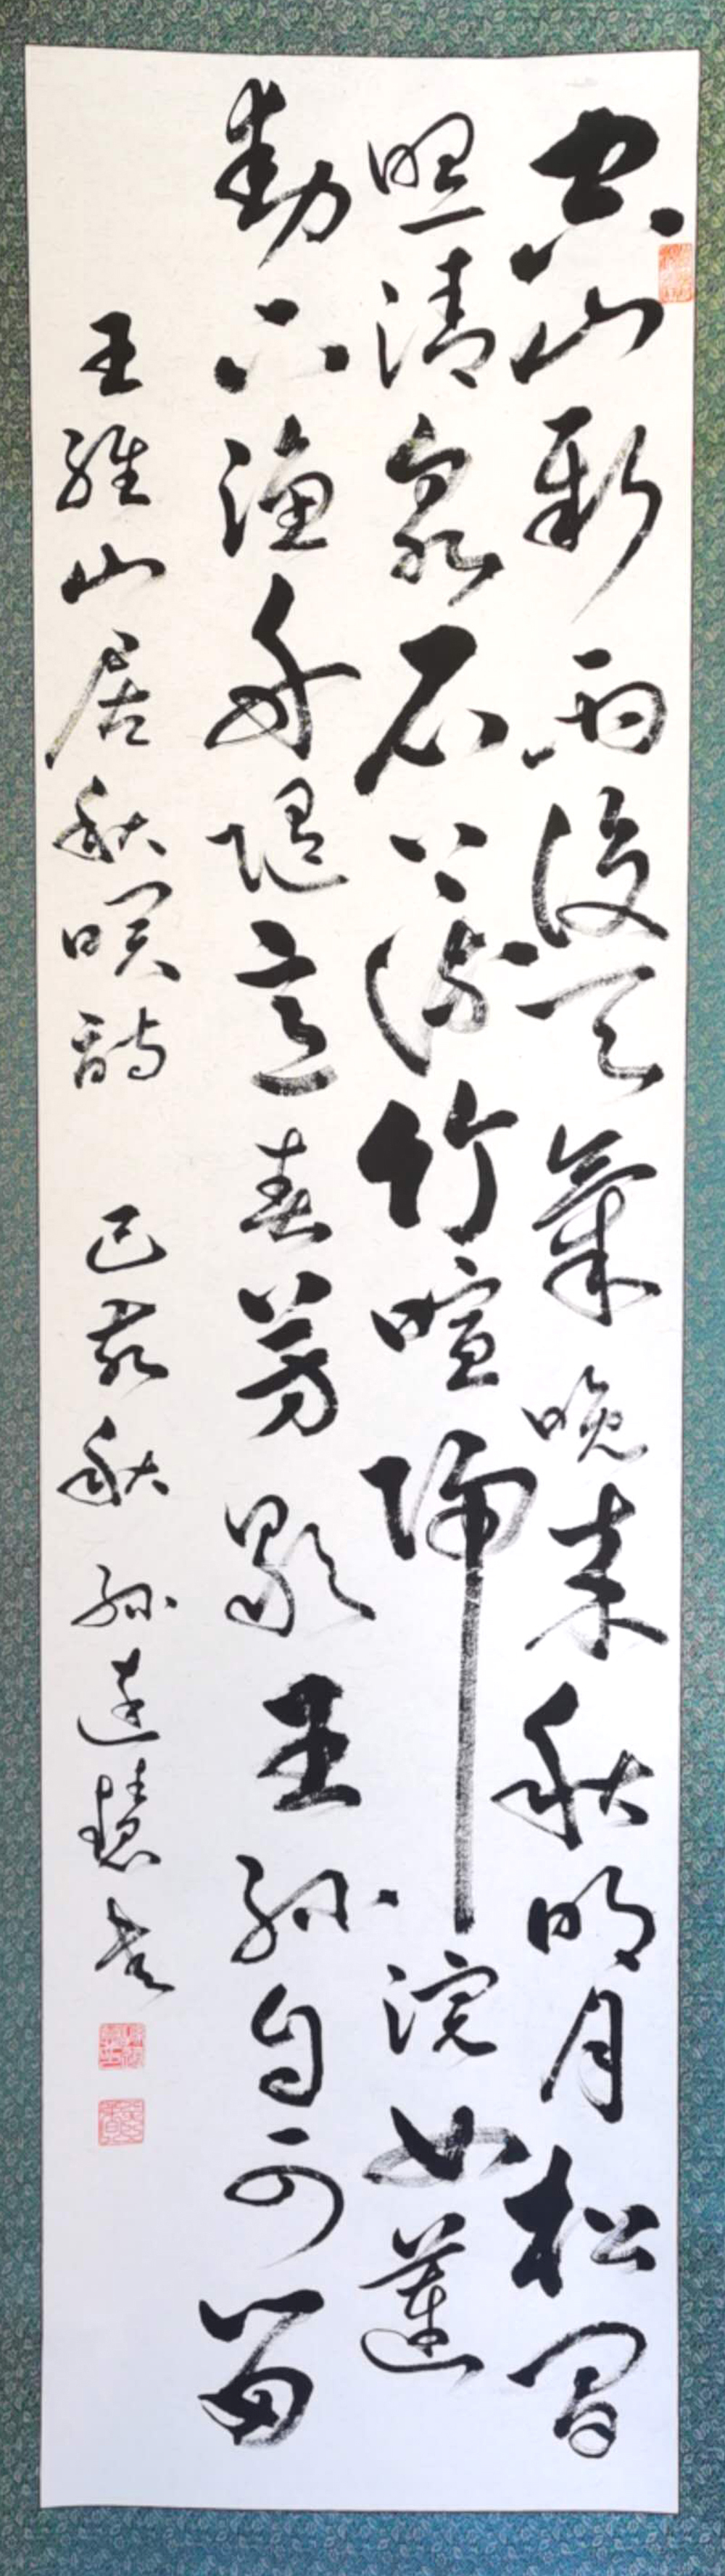 空山新雨後天氣晚來秋明月松間
照清泉石上流竹喧歸浣女蓮
動下漁舟隨意春芳歇王孫自可留
王維山居秋暝詩 己亥秋 孫達慧書